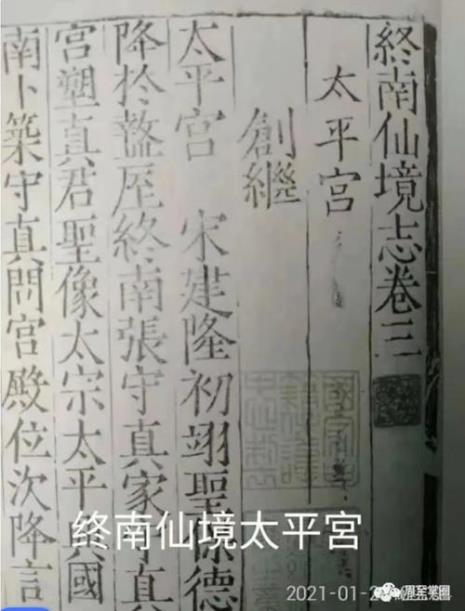 終南仙境志卷三
太平宮
創繼
太平宮 宋建隆初翊聖保德
降於盩厔終南張守真家 真
宮塑真君聖像太宗太平興國
南卜築守真問宮殿位次降言
终南仙境太平宫
2021-01-2
周至掌圈